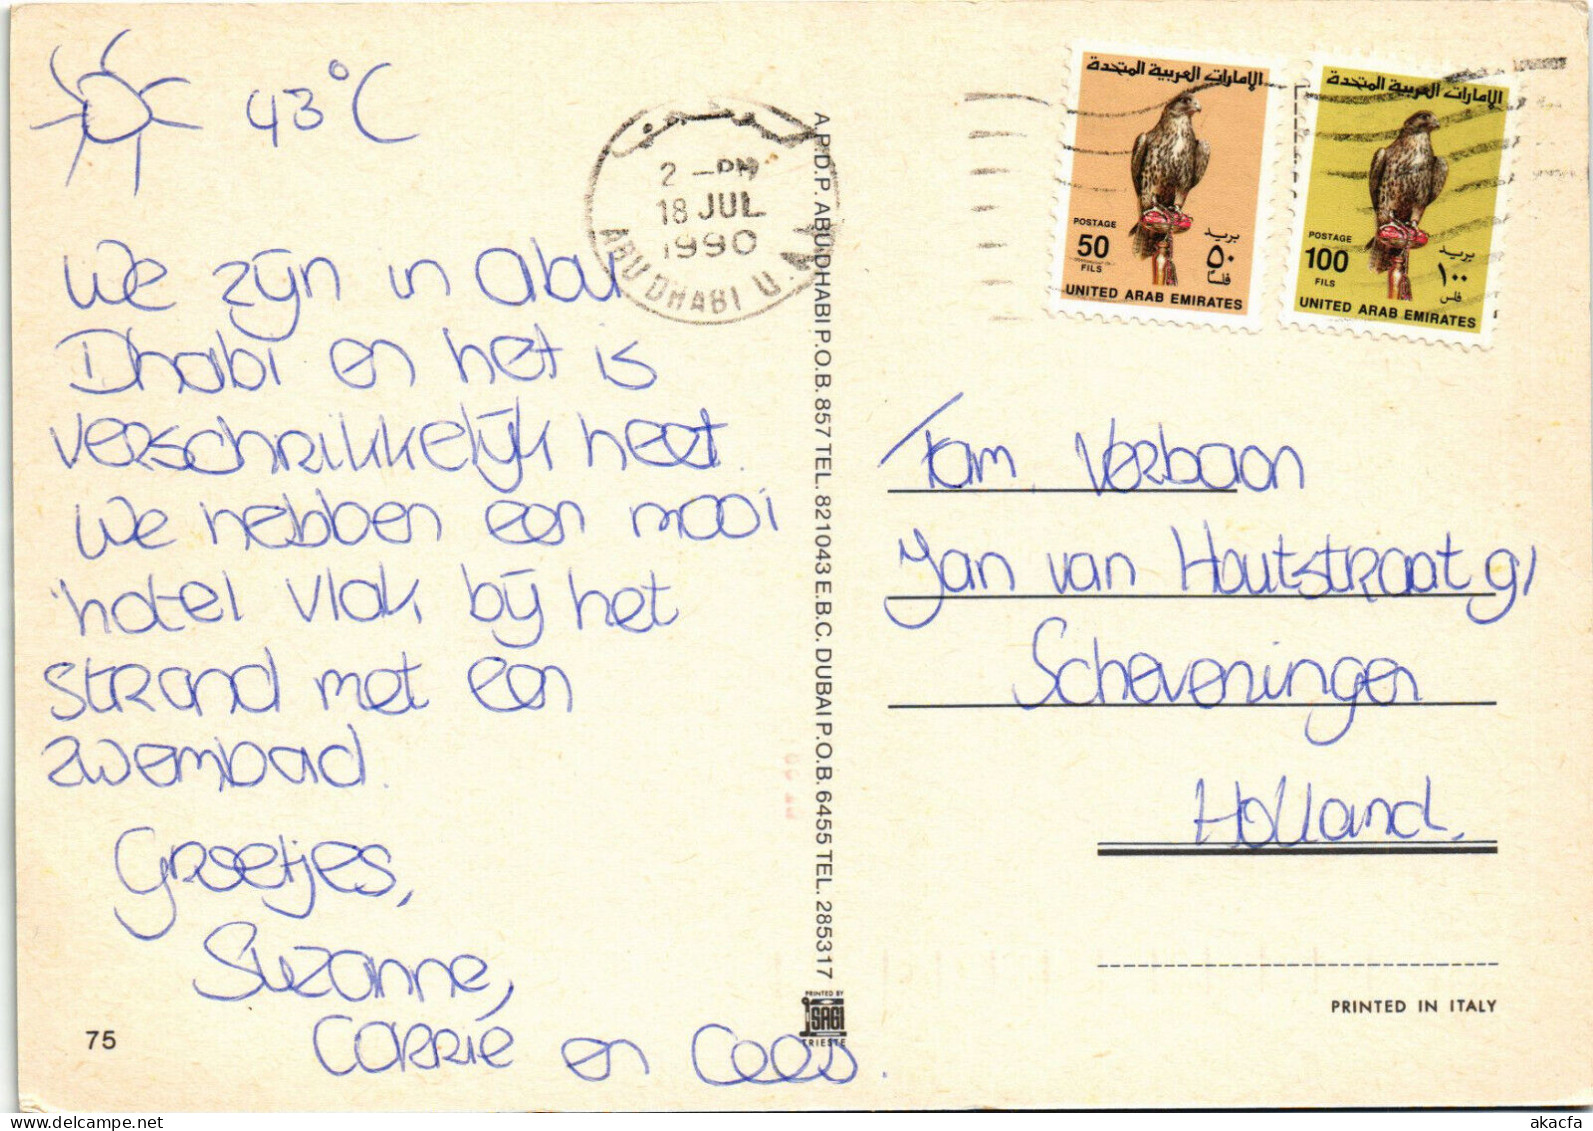 43°C
We zijn in Abu
Dhabi en het is
verschrikkelijk heet.
We hebben een mooi
hotel vlak bij het
strand met een
zwembad.
Groetjes,
Suzanne,
Corrie en Cees.
75
2 - PM
18 JUL
1990
ABU DHABI U.
A.P.D.P. ABUDHABI P.O.B. 857 TEL. 821043 E.B.C. DUBAI P.O.B. 6455 TEL. 285317
PRINTED BY
SAGI
TRIESTE
الإمارات العربية المتحدة
POSTAGE بريد
50 ٥٠
FILS فلس
UNITED ARAB EMIRATES
الإمارات العربية المتحدة
POSTAGE بريد
100 ١٠٠
FILS فلس
UNITED ARAB EMIRATES
Fam. Verbaan
Jan van Houtstraat 91
Scheveningen
Holland.
PRINTED IN ITALY
akacfa